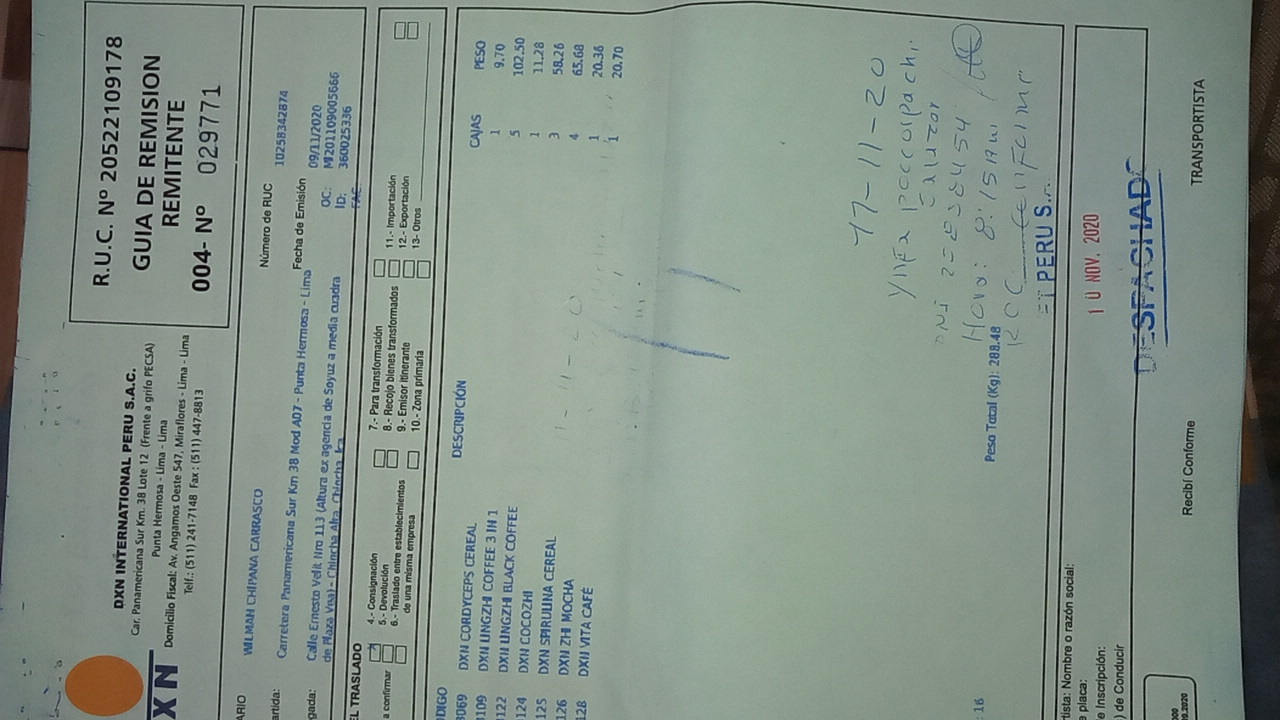 DXN INTERNATIONAL PERU S.A.C.
Car. Panamericana Sur Km. 38 Lote 12 (Frente a grifo PECSA)
Punta Hermosa - Lima - Lima
Domicilio Fiscal: Av. Angamos Oeste 547, Miraflores - Lima - Lima
Telf.: (511) 241-7148 Fax : (511) 447-8813
XN
R.U.C. Nº 20522109178
GUIA DE REMISION
REMITENTE
004- Nº 029771
ARIO WILMAN CHIPANA CARRASCO Número de RUC 10258342874
artida: Carretera Panamericana Sur Km 38 Mod A07 - Punta Hermosa - Lima Fecha de Emisión 09/11/2020
gada: Calle Ernesto Velit Nro 113 (Altura ex agencia de Soyuz a media cuadra OC: MI201109005666
de Plaza Vea) - Chincha Alta, Chincha, Ica ID: 360025336
FAC
EL TRASLADO
a confirmar
4.- Consignación
5.- Devolución
6.- Traslado entre establecimientos
de una misma empresa
7.- Para transformación
8.- Recojo bienes transformados
9.- Emisor itinerante
10.- Zona primaria
11.- Importación
12.- Exportación
13- Otros
DIGO DESCRIPCIÓN CAJAS PESO
069 DXN CORDYCEPS CEREAL 1 9.70
109 DXN LINGZHI COFFEE 3 IN 1 5 102.50
122 DXN LINGZHI BLACK COFFEE 1 11.28
124 DXN COCOZHI 3 58.26
125 DXN SPIRULINA CEREAL 4 65.68
126 DXN ZHI MOCHA 1 20.36
128 DXN VITA CAFÉ 1 20.70
17-11-20
Hora: 8:15 AM
16 Peso Total (Kg): 288.48
PERU S
tista: Nombre o razón social:
e placa:
e Inscripción:
) de Conducir
10 NOV. 2020
DESPACHADO
Recibí Conforme
TRANSPORTISTA